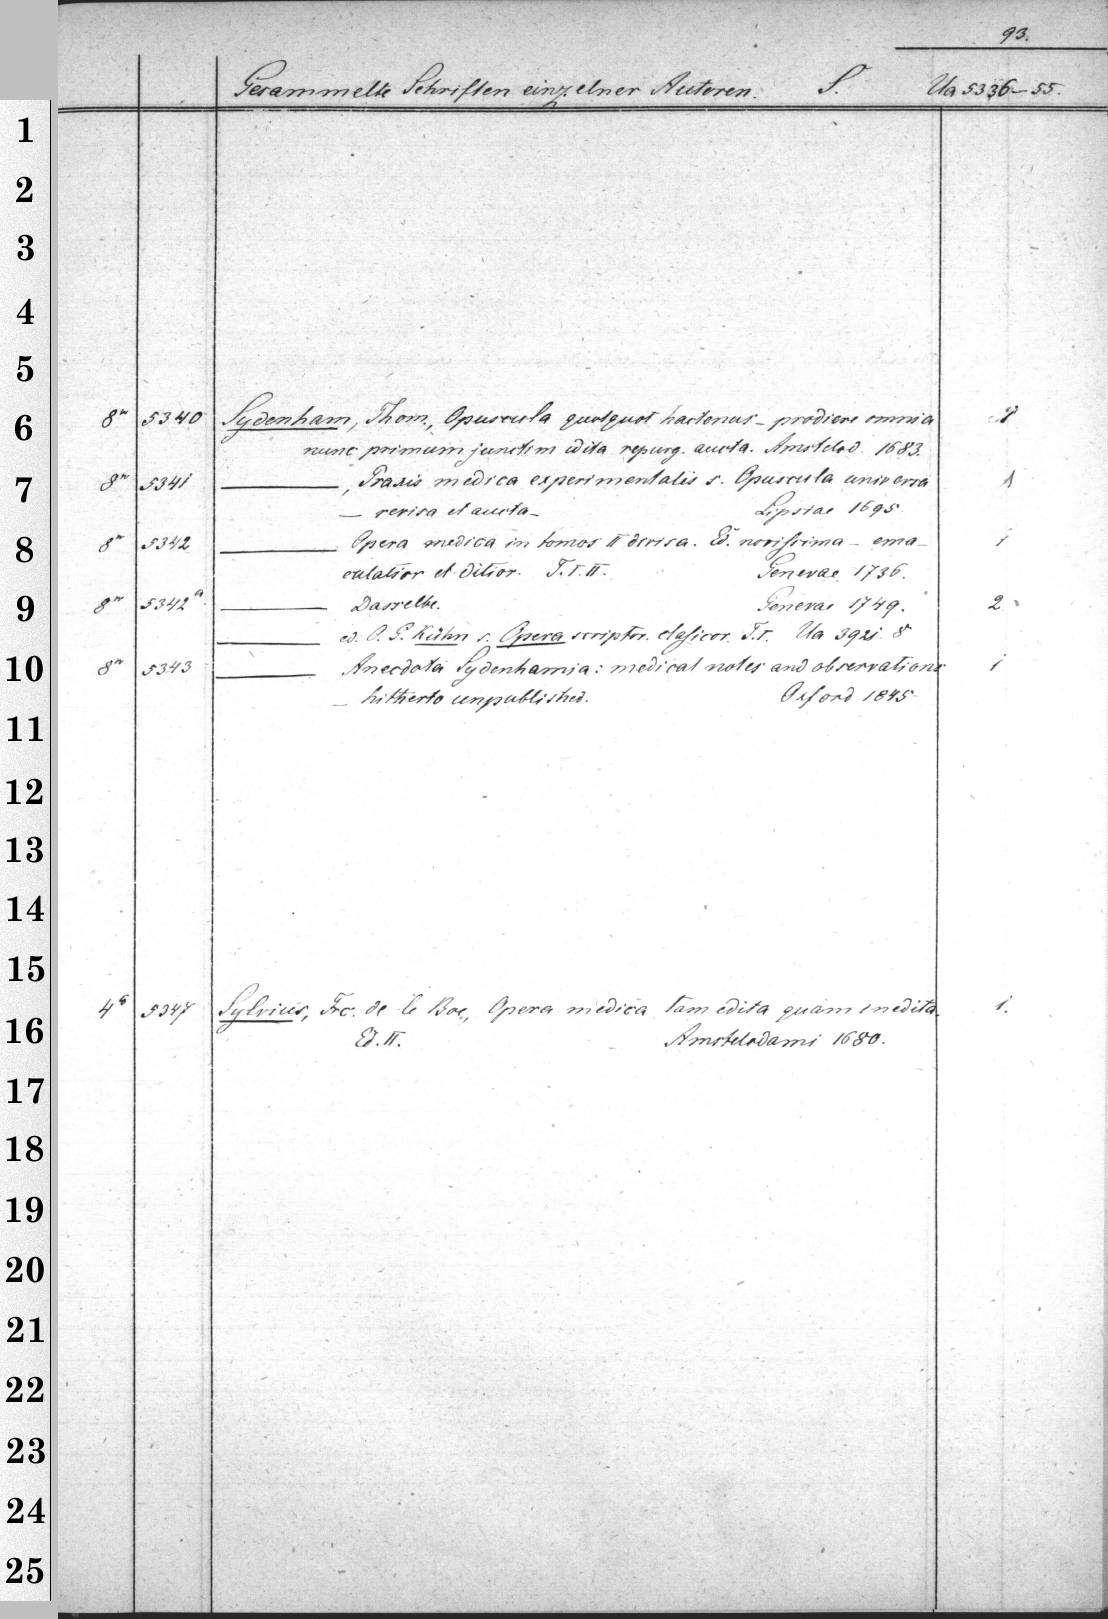 93.
Gesammelte Schriften einzelner Autoren. S. Ua 5336-55.
1
2
3
4
5
6
8° 5340 Sydenham, Thom., Opuscula quotquot hactenus - prodiere omnia 1
nunc primum junctim edita repurg. aucta. Amstelod. 1683.
7
8° 5341 ———, Praxis medica experimentalis s. Opuscula universa 1
— revisa et aucta — Lipsiae 1695.
8
8° 5342 ——— Opera medica in tomos II divisa. Ed. novissima - ema- 1
culatior et ditior. T. I. II. Genevae 1736.
9
8° 5342a. ——— Dasselbe. Genevae 1749. 2
——— ed. C. G. Kühn s. Opera scriptor. classicor. T. I. Ua 3921. 8
10
8° 5343 ——— Anecdota Sydenhamia: medical notes and observations 1
— hitherto unpublished. Oxford 1845
11
12
13
14
15
16
4° 5347 Sylvius, Frc. de le Boe, Opera medica tam edita quam inedita. 1.
Ed. II. Amstelodami 1680.
17
18
19
20
21
22
23
24
25